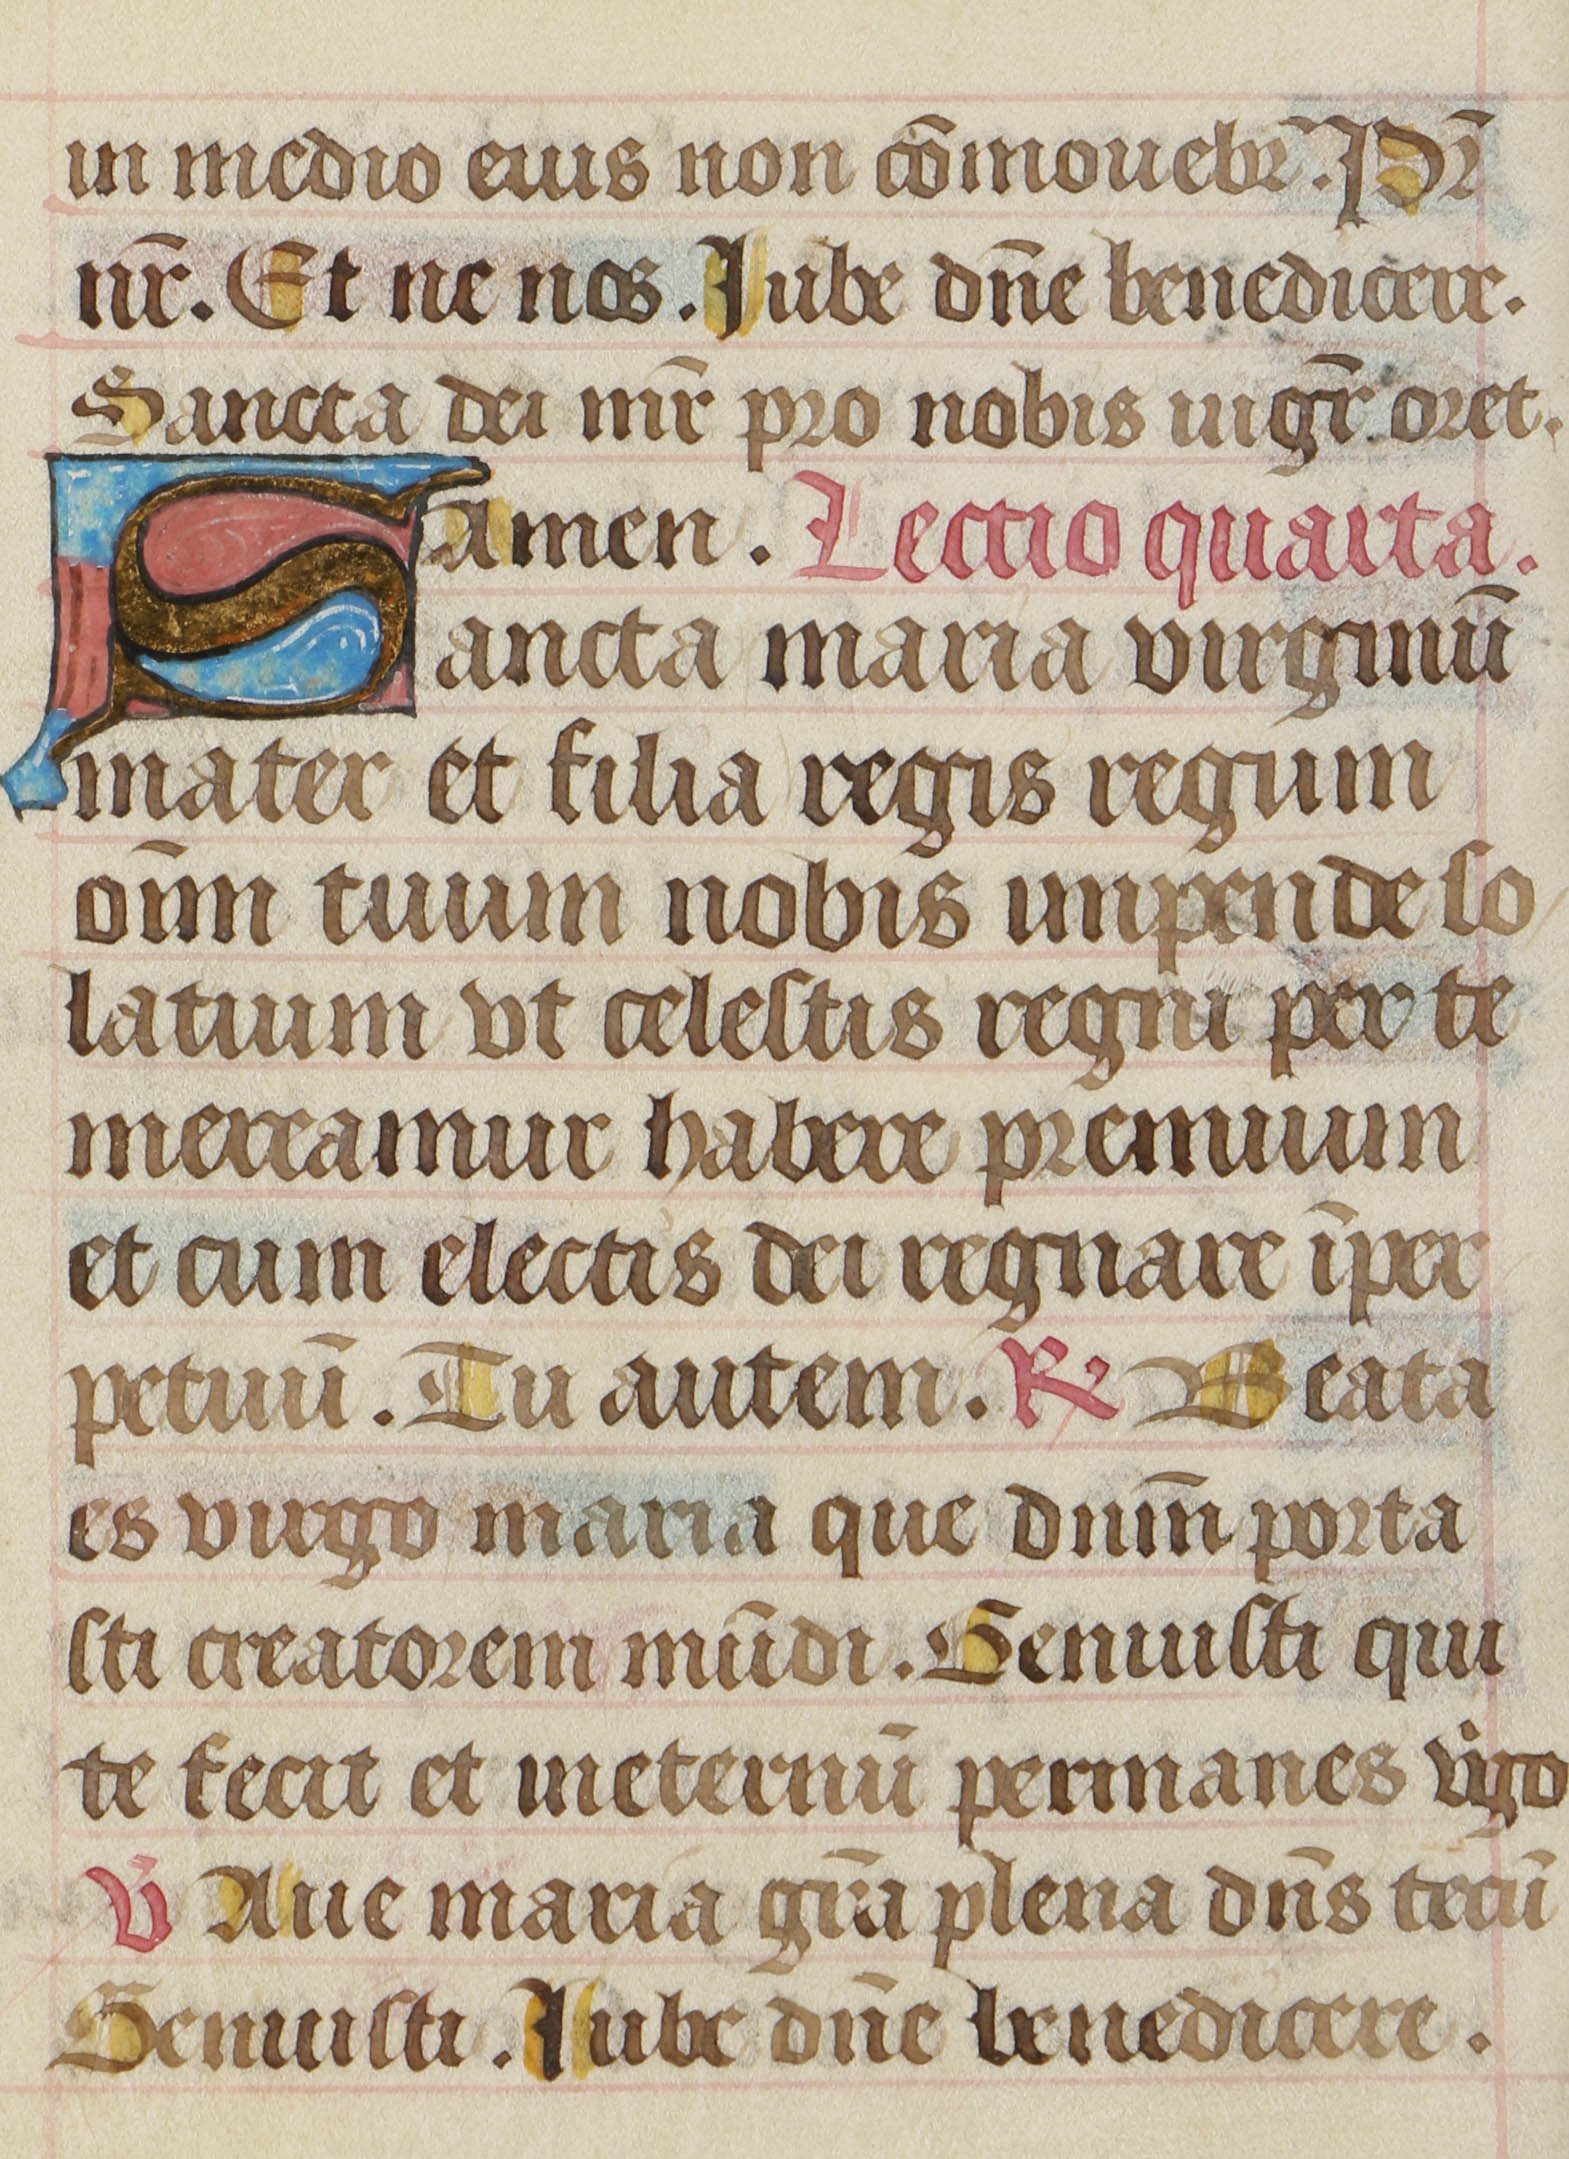 in medio eius non cōmouebr̄. Pr̄
nr̄. Et ne nos. Iube dn̄e benedicere.
Sancta dei mr̄ pro nobis uigr̄ oret.
Amen. Lectio quarta.
Sancta maria virginū
mater et filia regis regum
oīm tuum nobis impende so
latium vt celestis regni per te
mereamur habere premium
et cum electis dei regnare īper
petuū. Tu autem. ℟ Beata
es virgo maria que dnīm porta
sti creatorem mūdi. Genuisti qui
te fecit et ineternū permanes vigo
℣ Aue maria grā plena dn̄s tecū
Genuisti. Iube dn̄e benedicere.